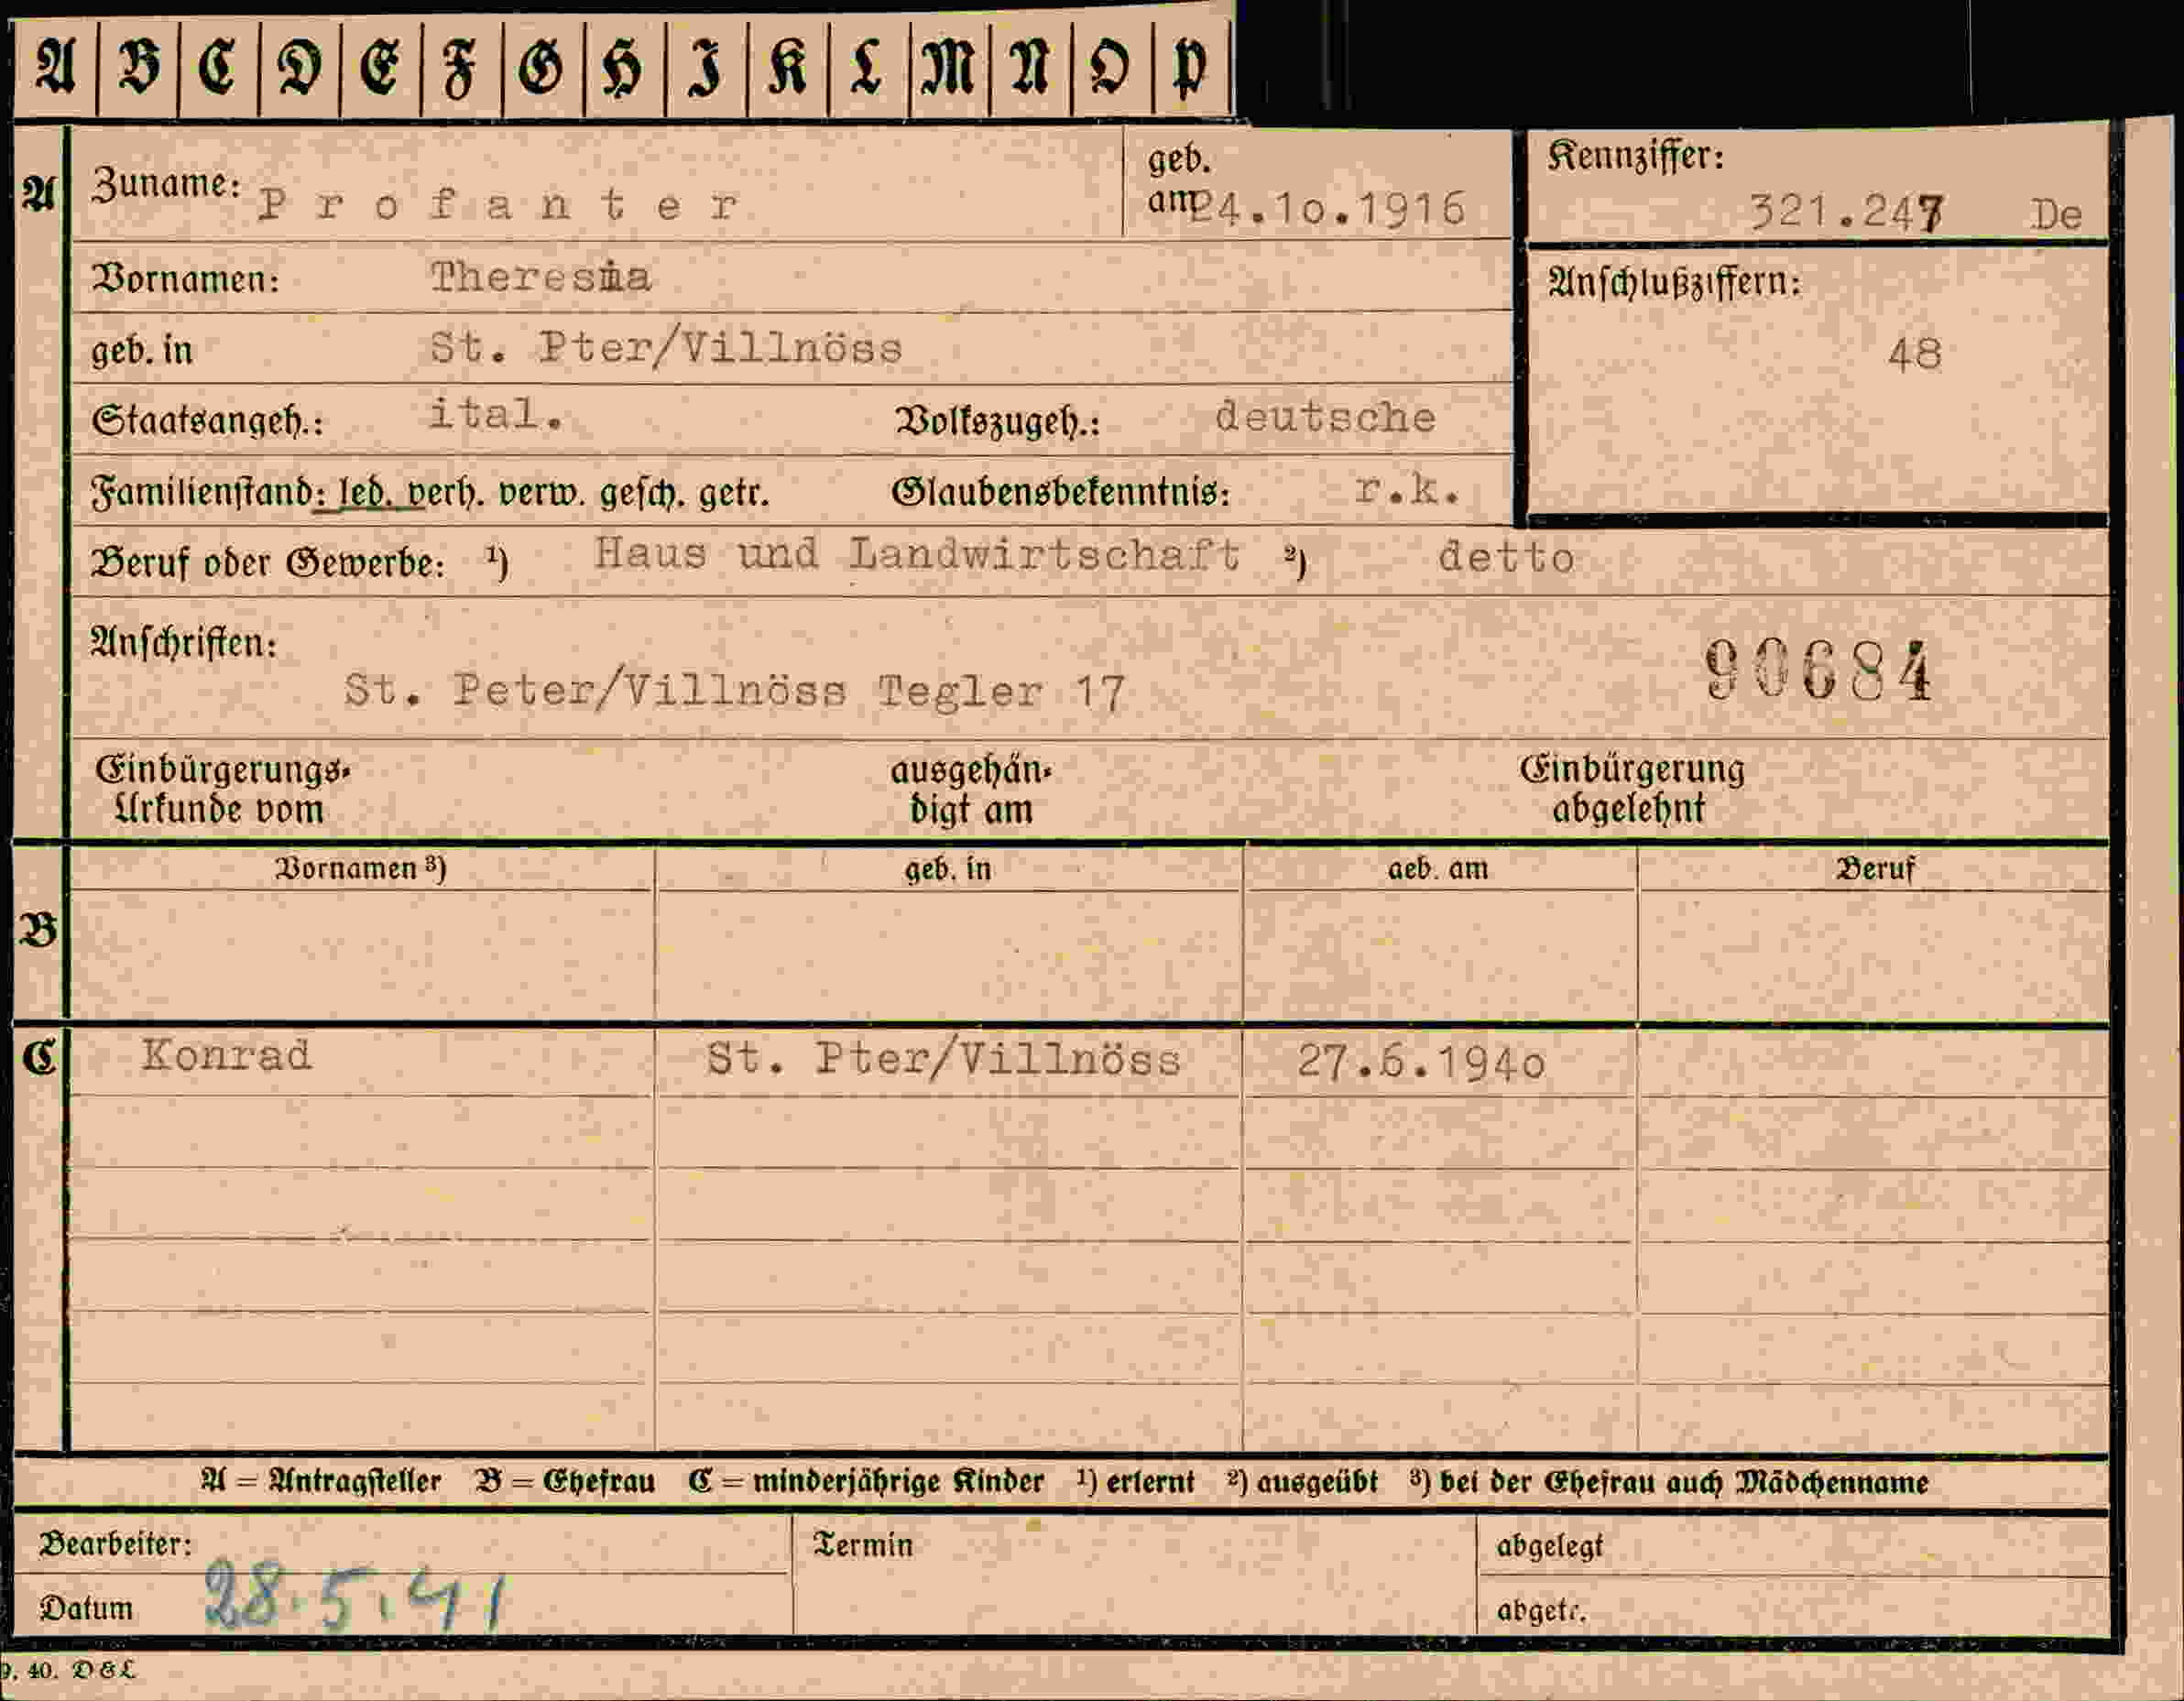 A B C D E F G H I K L M N O P
A Zuname: Profanter geb. am 24.1o.1916 Kennziffer: 321.247 De
Vornamen: Theresia
Anschlußziffern:
geb. in St. Pter/Villnöss 48
Staatsangeh.: ital. Volkszugeh.: deutsche
Familienstand: led. verh. verw. gesch. getr. Glaubensbekenntnis: r.k.
Beruf oder Gewerbe: ¹) Haus und Landwirtschaft ²) detto
Anschriften:
St. Peter/Villnöss Tegler 17 90684
Einbürgerungs-Urkunde vom ausgehändigt am Einbürgerung abgelehnt
Vornamen ³) geb. in geb. am Beruf
B
C Konrad St. Pter/Villnöss 27.6.194o
A = Antragsteller B = Ehefrau C = minderjährige Kinder ¹) erlernt ²) ausgeübt ³) bei der Ehefrau auch Mädchenname
Bearbeiter: Termin abgelegt
Datum 28.5.41 abgetr.
9. 40. D&L